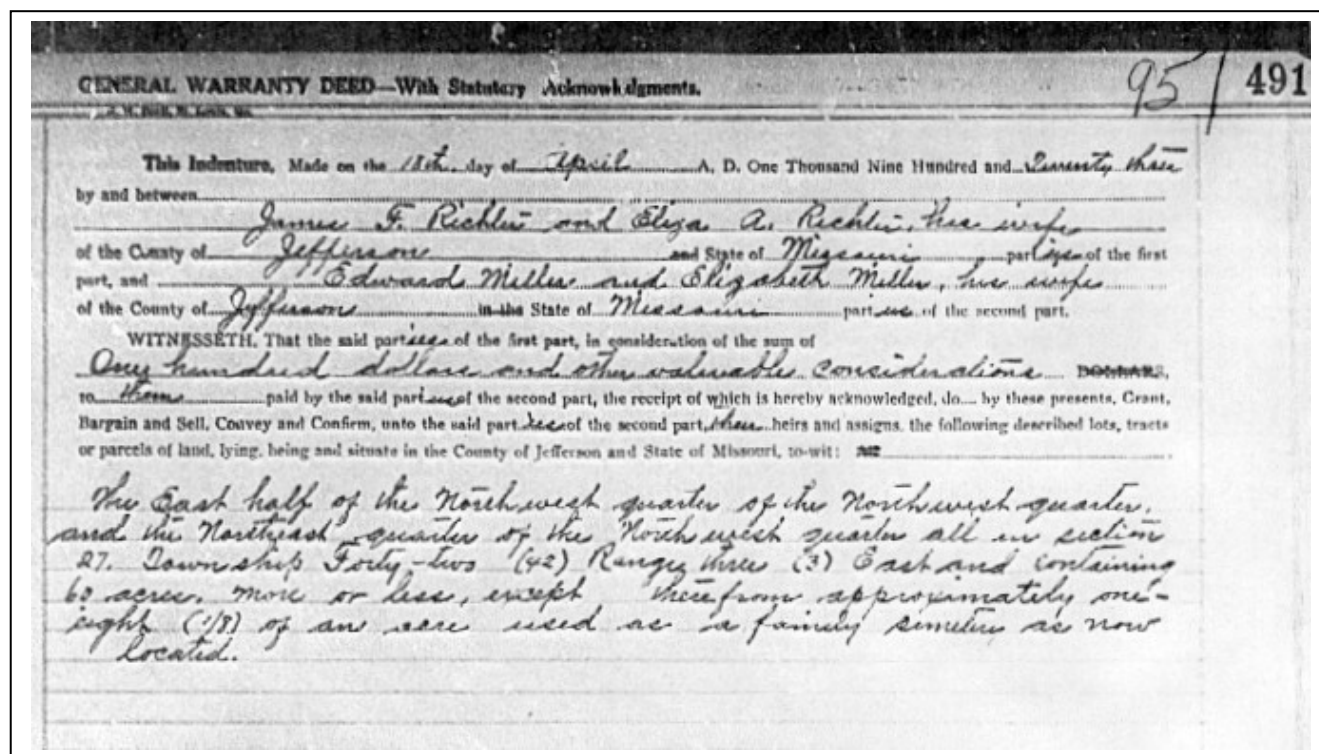 GENERAL WARRANTY DEED—With Statutory Acknowledgments.
95/ 491
This Indenture, Made on the 18th day of April A. D. One Thousand Nine Hundred and Twenty three
by and between
James F. Richter and Eliza A. Richter, his wife
of the County of Jefferson and State of Missouri parties of the first
part, and Edward Miller and Elizabeth Miller, his wife
of the County of Jefferson in the State of Missouri parties of the second part.
WITNESSETH, That the said parties of the first part, in consideration of the sum of
One hundred dollars and other valuable considerations DOLLARS,
to them paid by the said parties of the second part, the receipt of which is hereby acknowledged, do by these presents, Grant,
Bargain and Sell, Convey and Confirm, unto the said parties of the second part, their heirs and assigns, the following described lots, tracts
or parcels of land, lying, being and situate in the County of Jefferson and State of Missouri, to-wit:
The East half of the Northwest quarter of the Northwest quarter,
and the Northeast quarter of the Northwest quarter all in section
27. Township Forty-two (42) Range three (3) East and containing
60 acres, more or less, except therefrom approximately one-
eight (1/8) of an acre used as a family simetery as now
located.